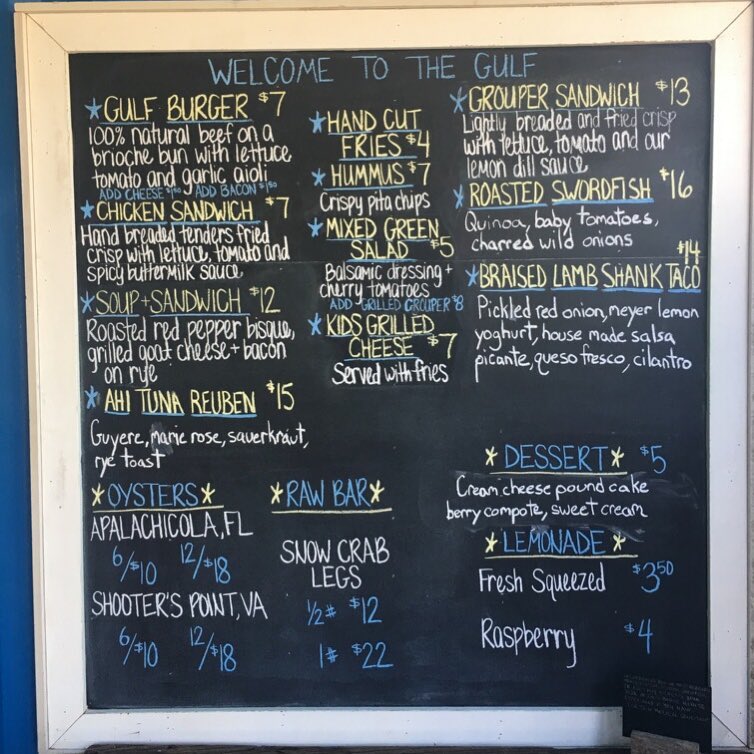 WELCOME TO THE GULF
GULF BURGER $7
100% natural beef on a
brioche bun with lettuce
tomato and garlic aioli
ADD CHEESE $1.50 ADD BACON $1.50
CHICKEN SANDWICH $7
Hand breaded tenders fried
crisp with lettuce, tomato and
spicy buttermilk sauce
SOUP+SANDWICH $12
Roasted red pepper bisque,
grilled goat cheese + bacon
on rye
AHI TUNA REUBEN $15
Guyere, marie rose, sauerkraut,
rye toast
HAND CUT
FRIES $4
HUMMUS $7
Crispy pita chips
MIXED GREEN
SALAD $5
Balsamic dressing +
cherry tomatoes
ADD GRILLED GROUPER $8
KIDS GRILLED
CHEESE $7
Served with fries
GROUPER SANDWICH $13
Lightly breaded and fried crisp
with lettuce, tomato and our
lemon dill sauce
ROASTED SWORDFISH $16
Quinoa, baby tomatoes,
charred wild onions
$14
BRAISED LAMB SHANK TACO
Pickled red onion, meyer lemon
yoghurt, house made salsa
picante, queso fresco, cilantro
OYSTERS
APALACHICOLA, FL
6/$10 12/$18
SHOOTER'S POINT, VA
6/$10 12/$18
RAW BAR
SNOW CRAB
LEGS
1/2# $12
1# $22
DESSERT $5
Cream cheese pound cake
berry compote, sweet cream
LEMONADE
Fresh Squeezed $3.50
Raspberry $4